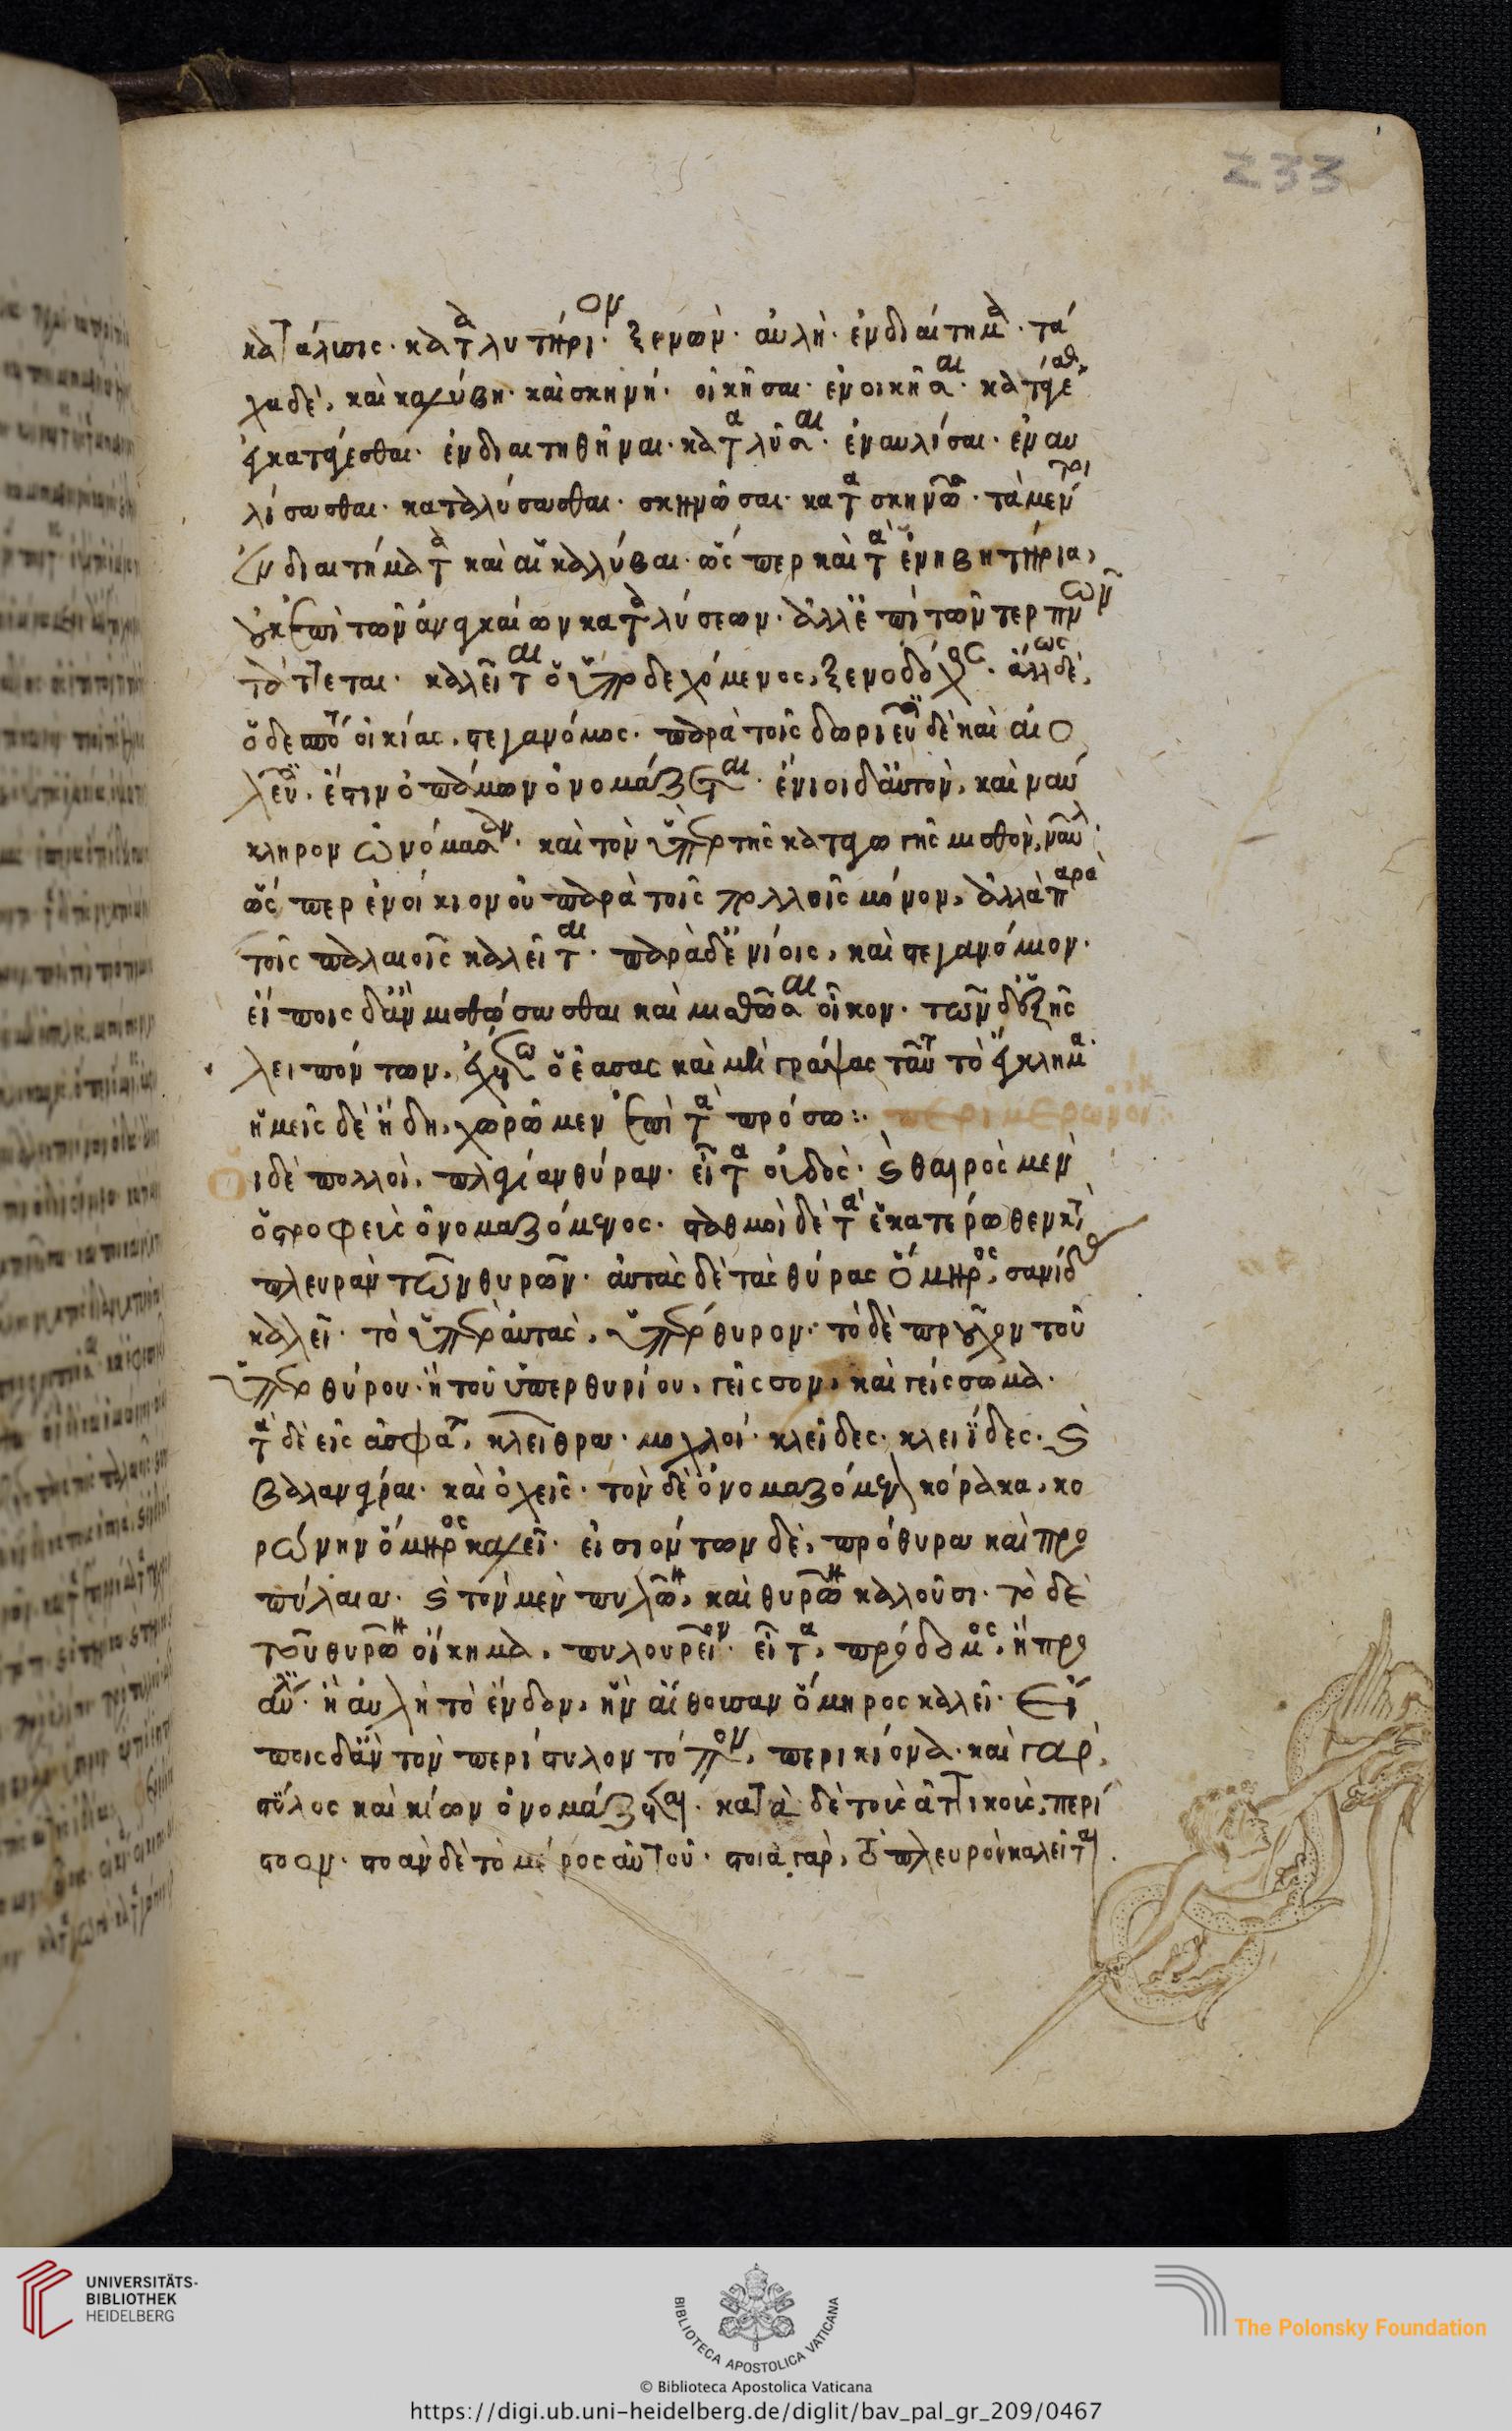 233
κατάλυσις· καταλυτήριον· ξενών· αὐλή· ἐνδιαίτημα· τά
χα δὲ, καὶ καλύβη· καὶ σκηνή· οἰκῆσαι· ἐνοικῆσαι·
ἐνδιαιτηθῆναι· καταλῦσαι· ἐναυλίσαι· ἐναυ
λίσασθαι· καταλύσασθαι· σκηνῶσαι· κατασκηνῶσαι· τὰ μέν
ἐνδιαιτήματα καὶ αἱ καλύβαι· ὥσπερ καὶ τὰ ἐνηβητήρια,
οὐκ ἐπὶ τῶν ἀναγκαίων καταλύσεων· ἀλλ' ἐπὶ τῶν τερπνῶν
τάττεται· καλεῖται ὁ ὑποδεχόμενος, ξενοδόχος· ἄλλως δὲ,
ὁ δὲ ἀπὸ οἰκίας, στεγανόμος· παρὰ τοῖς δωριεῦσι δὲ καὶ αἰο
λεῦσι, ἑστιοπάμων ὀνομάζεται· ἔνιοι δ' αὐτὸν, καὶ ναύ
κληρον ὠνόμασαν· καὶ τὸν ὑπὲρ τῆς καταγωγῆς μισθὸν, ναῦλ
ὥσπερ ἐνοίκιον οὐ παρὰ τοῖς πολλοῖς μόνον, ἀλλὰ παρὰ
τοῖς παλαιοῖς καλεῖται· παρὰ δ' ἐνίοις, καὶ στεγανόμιον·
εἴποις δ' ἂν μισθώσασθαι καὶ μισθῶσαι οἶκον· τῶν δ' ἑξῆς
λειπόντων, ἐχέτω ὁ ἐάσας καὶ μὴ γράψας ταῦτ τὸ ἔγκλημα·
ἡμεῖς δὲ ἤδη, χωρῶμεν ἐπὶ τὰ πρόσω:·
Οἱ δὲ πολλοὶ, πλαγίαν θύραν· εἶτα οὐδός· καὶ θαιρὸς μὲν
ὁ στροφεὺς ὀνομαζόμενος· σταθμοὶ δὲ τὰ ἑκατέρωθεν κατὰ
πλευρὰν τῶν θυρῶν· αὐτὰς δὲ τὰς θύρας ὅμηρος, σανίδας
καλεῖ· τὸ ὑπὲρ αὐτὰς, ὑπέρθυρον· τὸ δὲ προῦχον τοῦ
ὑπερθύρου· ἢ τοῦ ὑπερθυρίου, γεῖσσον, καὶ γείσσωμα·
τὰ δὲ εἰς ἀσφα, κλεῖθρα· μοχλοί· κλεῖδες· κλειΐδες· καὶ
βαλανάγραι· καὶ ὀχεῖς· τὸν δὲ ὀνομαζόμενον κόρακα, κο
ρώνην ὅμηρος καλεῖ· εἰσιόντων δὲ, πρόθυρα καὶ προ
πύλαια· καὶ τὸν μὲν πυλῶνα, καὶ θυρῶνα καλοῦσι· τὸ δὲ
τοῦ θυρῶνος οἴκημα, πυλουρεῖον· εἶτα, πρόδομος, ἢ προ
αύλιον· ἢ αὐλὴ τὸ ἔνδον, ἣν αἴθουσαν ὅμηρος καλεῖ· Εἴ
ποις δ' ἂν τὸν περίστυλον τόπον, περικίονα· καὶ γὰρ,
στύλος καὶ κίων ὀνομάζεται· κατὰ δὲ τοὺς ἀττικοὺς, περί
στοον· στοὰν δὲ τὸ μέρος αὐτοῦ· στοιὰ γὰρ, τὸ πλευρὸν καλεῖται.
UNIVERSITÄTS-
BIBLIOTHEK
HEIDELBERG
BIBLIOTECA APOSTOLICA VATICANA
© Biblioteca Apostolica Vaticana
The Polonsky Foundation
https://digi.ub.uni-heidelberg.de/diglit/bav_pal_gr_209/0467